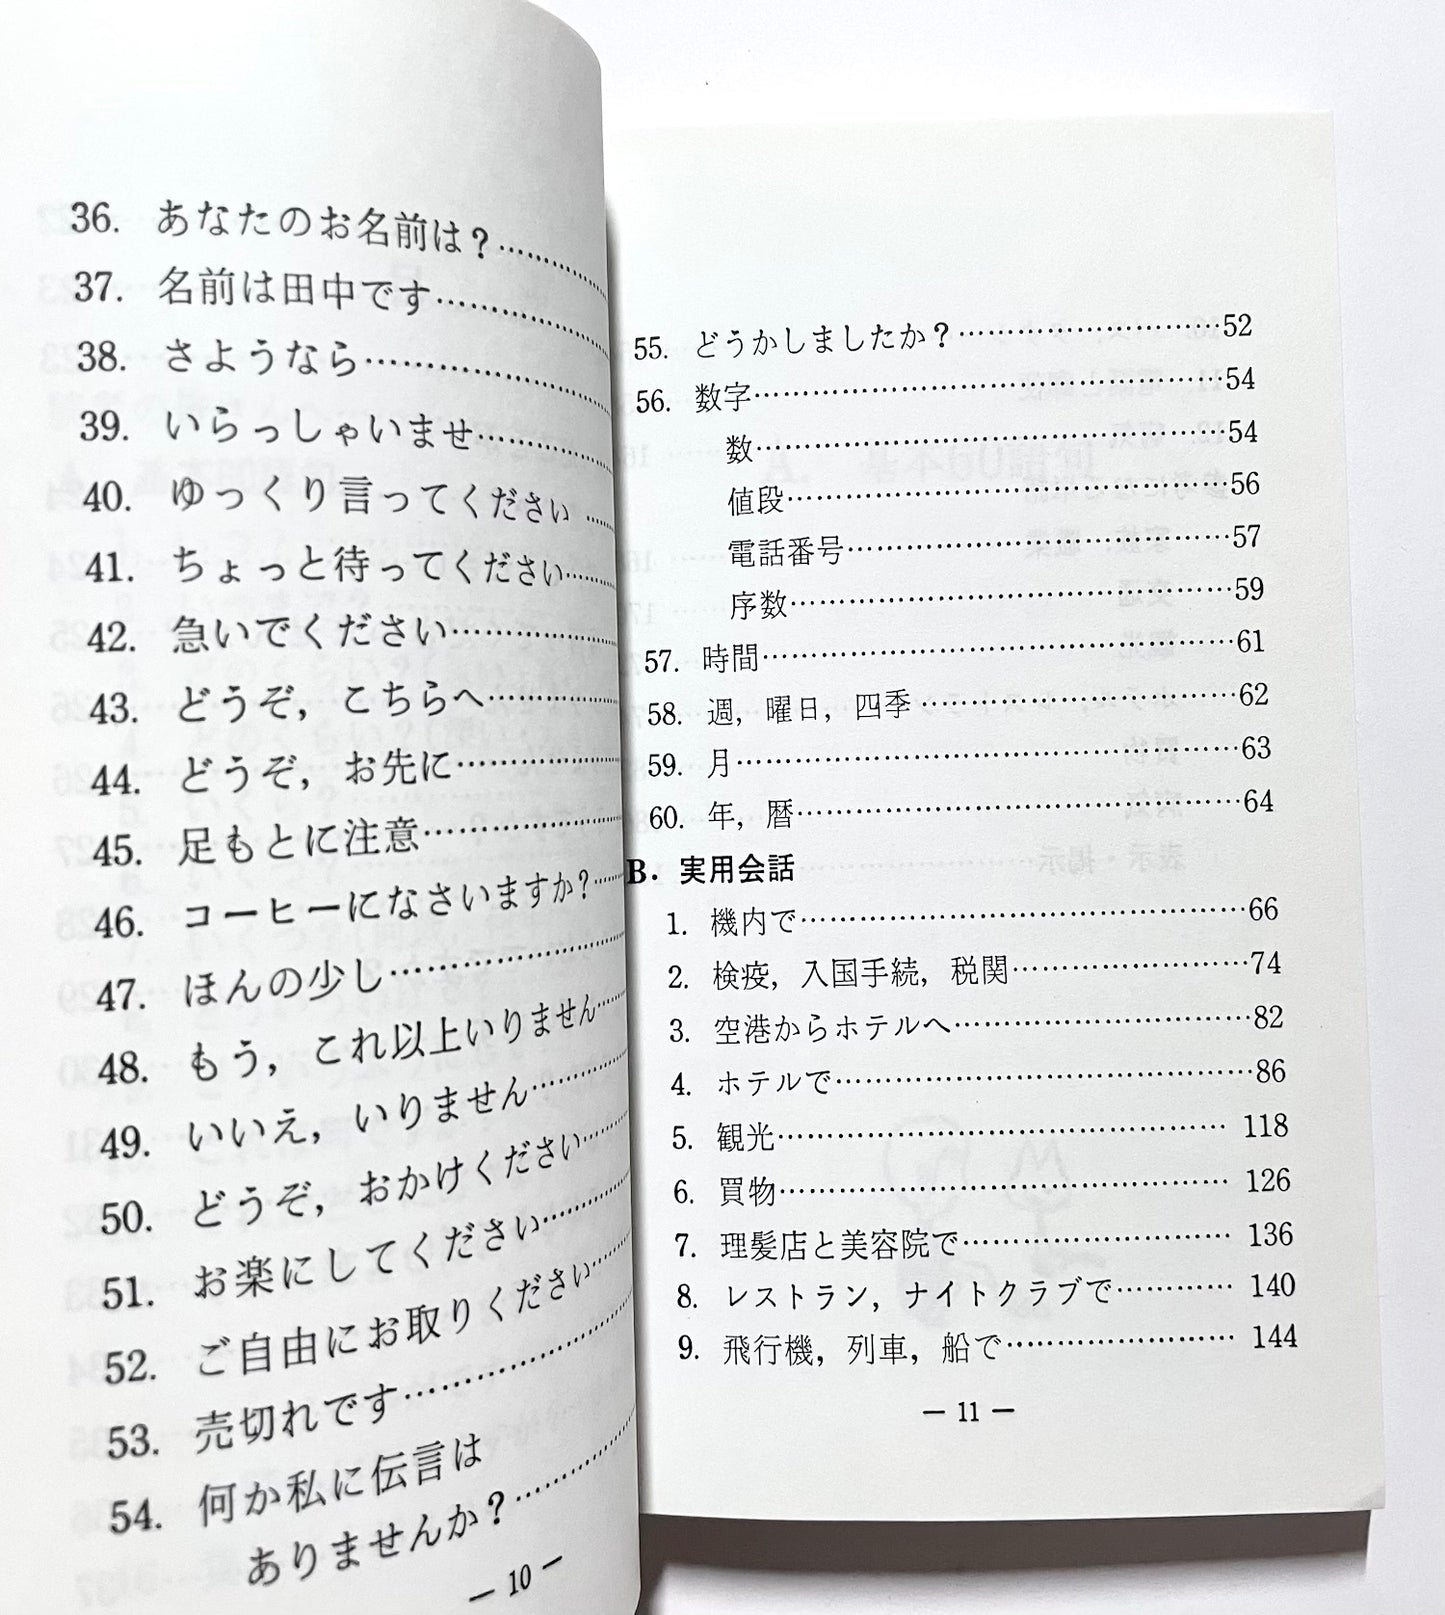 36. あなたのお名前は？……………
37. 名前は田中です……………
38. さようなら……………
39. いらっしゃいませ……………
40. ゆっくり言ってください ……
41. ちょっと待ってください……
42. 急いでください……………
43. どうぞ，こちらへ……………
44. どうぞ，お先に……………
45. 足もとに注意……………
46. コーヒーになさいますか？……
47. ほんの少し……………
48. もう，これ以上いりません……
49. いいえ，いりません……………
50. どうぞ，おかけください……
51. お楽にしてください……………
52. ご自由にお取りください……
53. 売切れです……………
54. 何か私に伝言は
ありませんか？……………
― 10 ―
55. どうかしましたか？……………………52
56. 数字……………………………54
数……………………………54
値段……………………………56
電話番号……………………………57
序数……………………………59
57. 時間……………………………61
58. 週，曜日，四季……………………62
59. 月……………………………63
60. 年，暦……………………………64
B. 実用会話
1. 機内で……………………………66
2. 検疫，入国手続，税関……………………74
3. 空港からホテルへ……………………82
4. ホテルで……………………………86
5. 観光…………………………… 118
6. 買物…………………………… 126
7. 理髪店と美容院で…………………… 136
8. レストラン，ナイトクラブで………… 140
9. 飛行機，列車，船で…………………… 144
― 11 ―